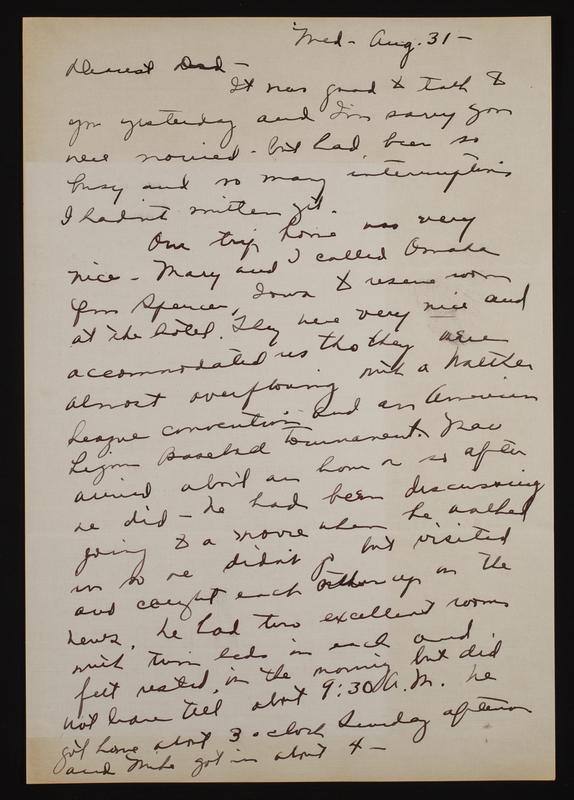 Wed - Aug. 31 -
Dearest Dad -
It was good to talk to
you yesterday and I'm sorry you
were worried - but had been so
busy and so many interruptions
I hadn't written yet.
Our trip home was very
nice - Mary and I called Omaha
from Spencer, Iowa to reserve room
at the hotel. They were very nice and
accommodated us tho they were
almost overflowing with a Walther
League convention and an American
Legion Baseball tournament.
arrived about an hour or so after
we did - he had been discussing
going to a movie when he walked
in so we didn't go but visited
and caught each other up on the
news. We had two excellent rooms
with twin beds in each and
felt rested in the morning but did
not leave till about 9:30 A.M. We
got home about 3 o'clock Sunday afternoon
and Mike got in about 4 -